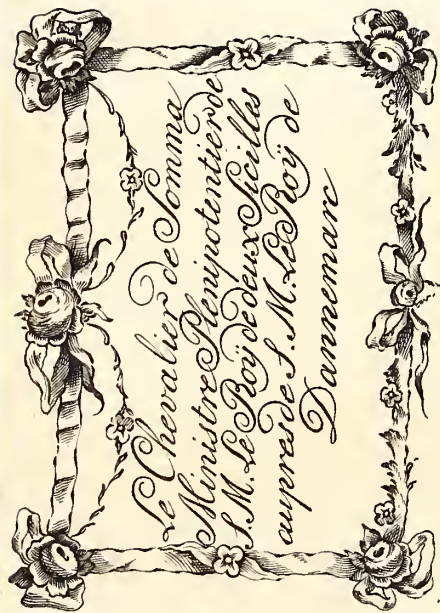 Le Chevalier de Somma
Ministre Plenipotentier de
S. M. Le Roÿ de deux Sicilles
aupres de S. M. Le Roÿ de
Dannemarc